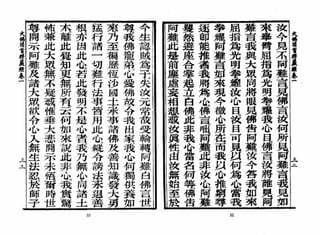 汝今見不阿難言見佛言汝何所見阿難言我見如
來舉臂屈指為光明拳耀我心目佛言汝將誰見阿
難言我與大眾同將眼見佛告阿難汝今答我如來
屈指為光明拳耀汝心目汝目可見以何為心當我
拳耀阿難言如來現今徵心所在而我以心推窮尋
逐即能推者我將為心佛言咄阿難此非汝心阿難
矍然避座合掌起立白佛此非我心當名何等佛告
阿難此是前塵虛妄相想惑汝真性由汝無始至於
今生認賊為子失汝元常故受輪轉阿難白佛言世
尊我佛寵弟心愛佛故令我出家我心何獨供養如
來乃至徧歷恆沙國土承事諸佛及善知識發大勇
猛行諸一切難行法事皆用此心縱令謗法永退善
根亦因此心若此發明不是心者我乃無心同諸土
木離此覺知更無所有云何如來說此非心我實驚
怖兼此大眾無不疑惑惟垂大悲開示未悟爾時世
尊開示阿難及諸大眾欲令心入無生法忍於師子